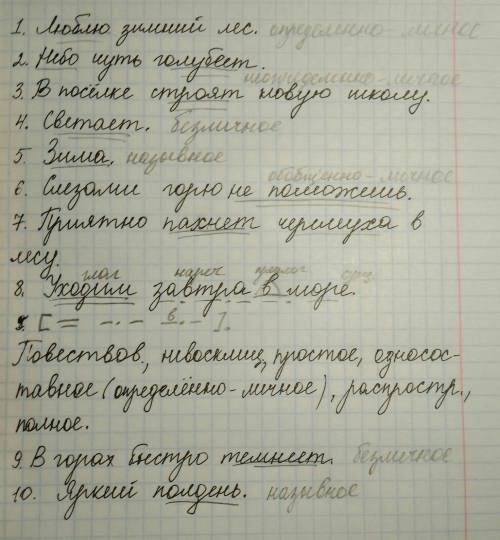 1. Люблю зимний лес. определенно-личное
2. Небо чуть голубеет.
неопределенно-личное
3. В посёлке строят новую школу.
4. Светает. безличное
5. Зима. назывное
обобщённо-личное
6. Слезами горю не поможешь.
7. Приятно пахнет черемуха в
лесу.
глаг нареч предлог сущ
8. Уходим завтра в море.
[= -.- в - ].
Повествов., невосклиц., простое, односос-
тавное (определённо-личное), распростр.,
полное.
9. В горах быстро темнеет. безличное
10. Яркий полдень. назывное